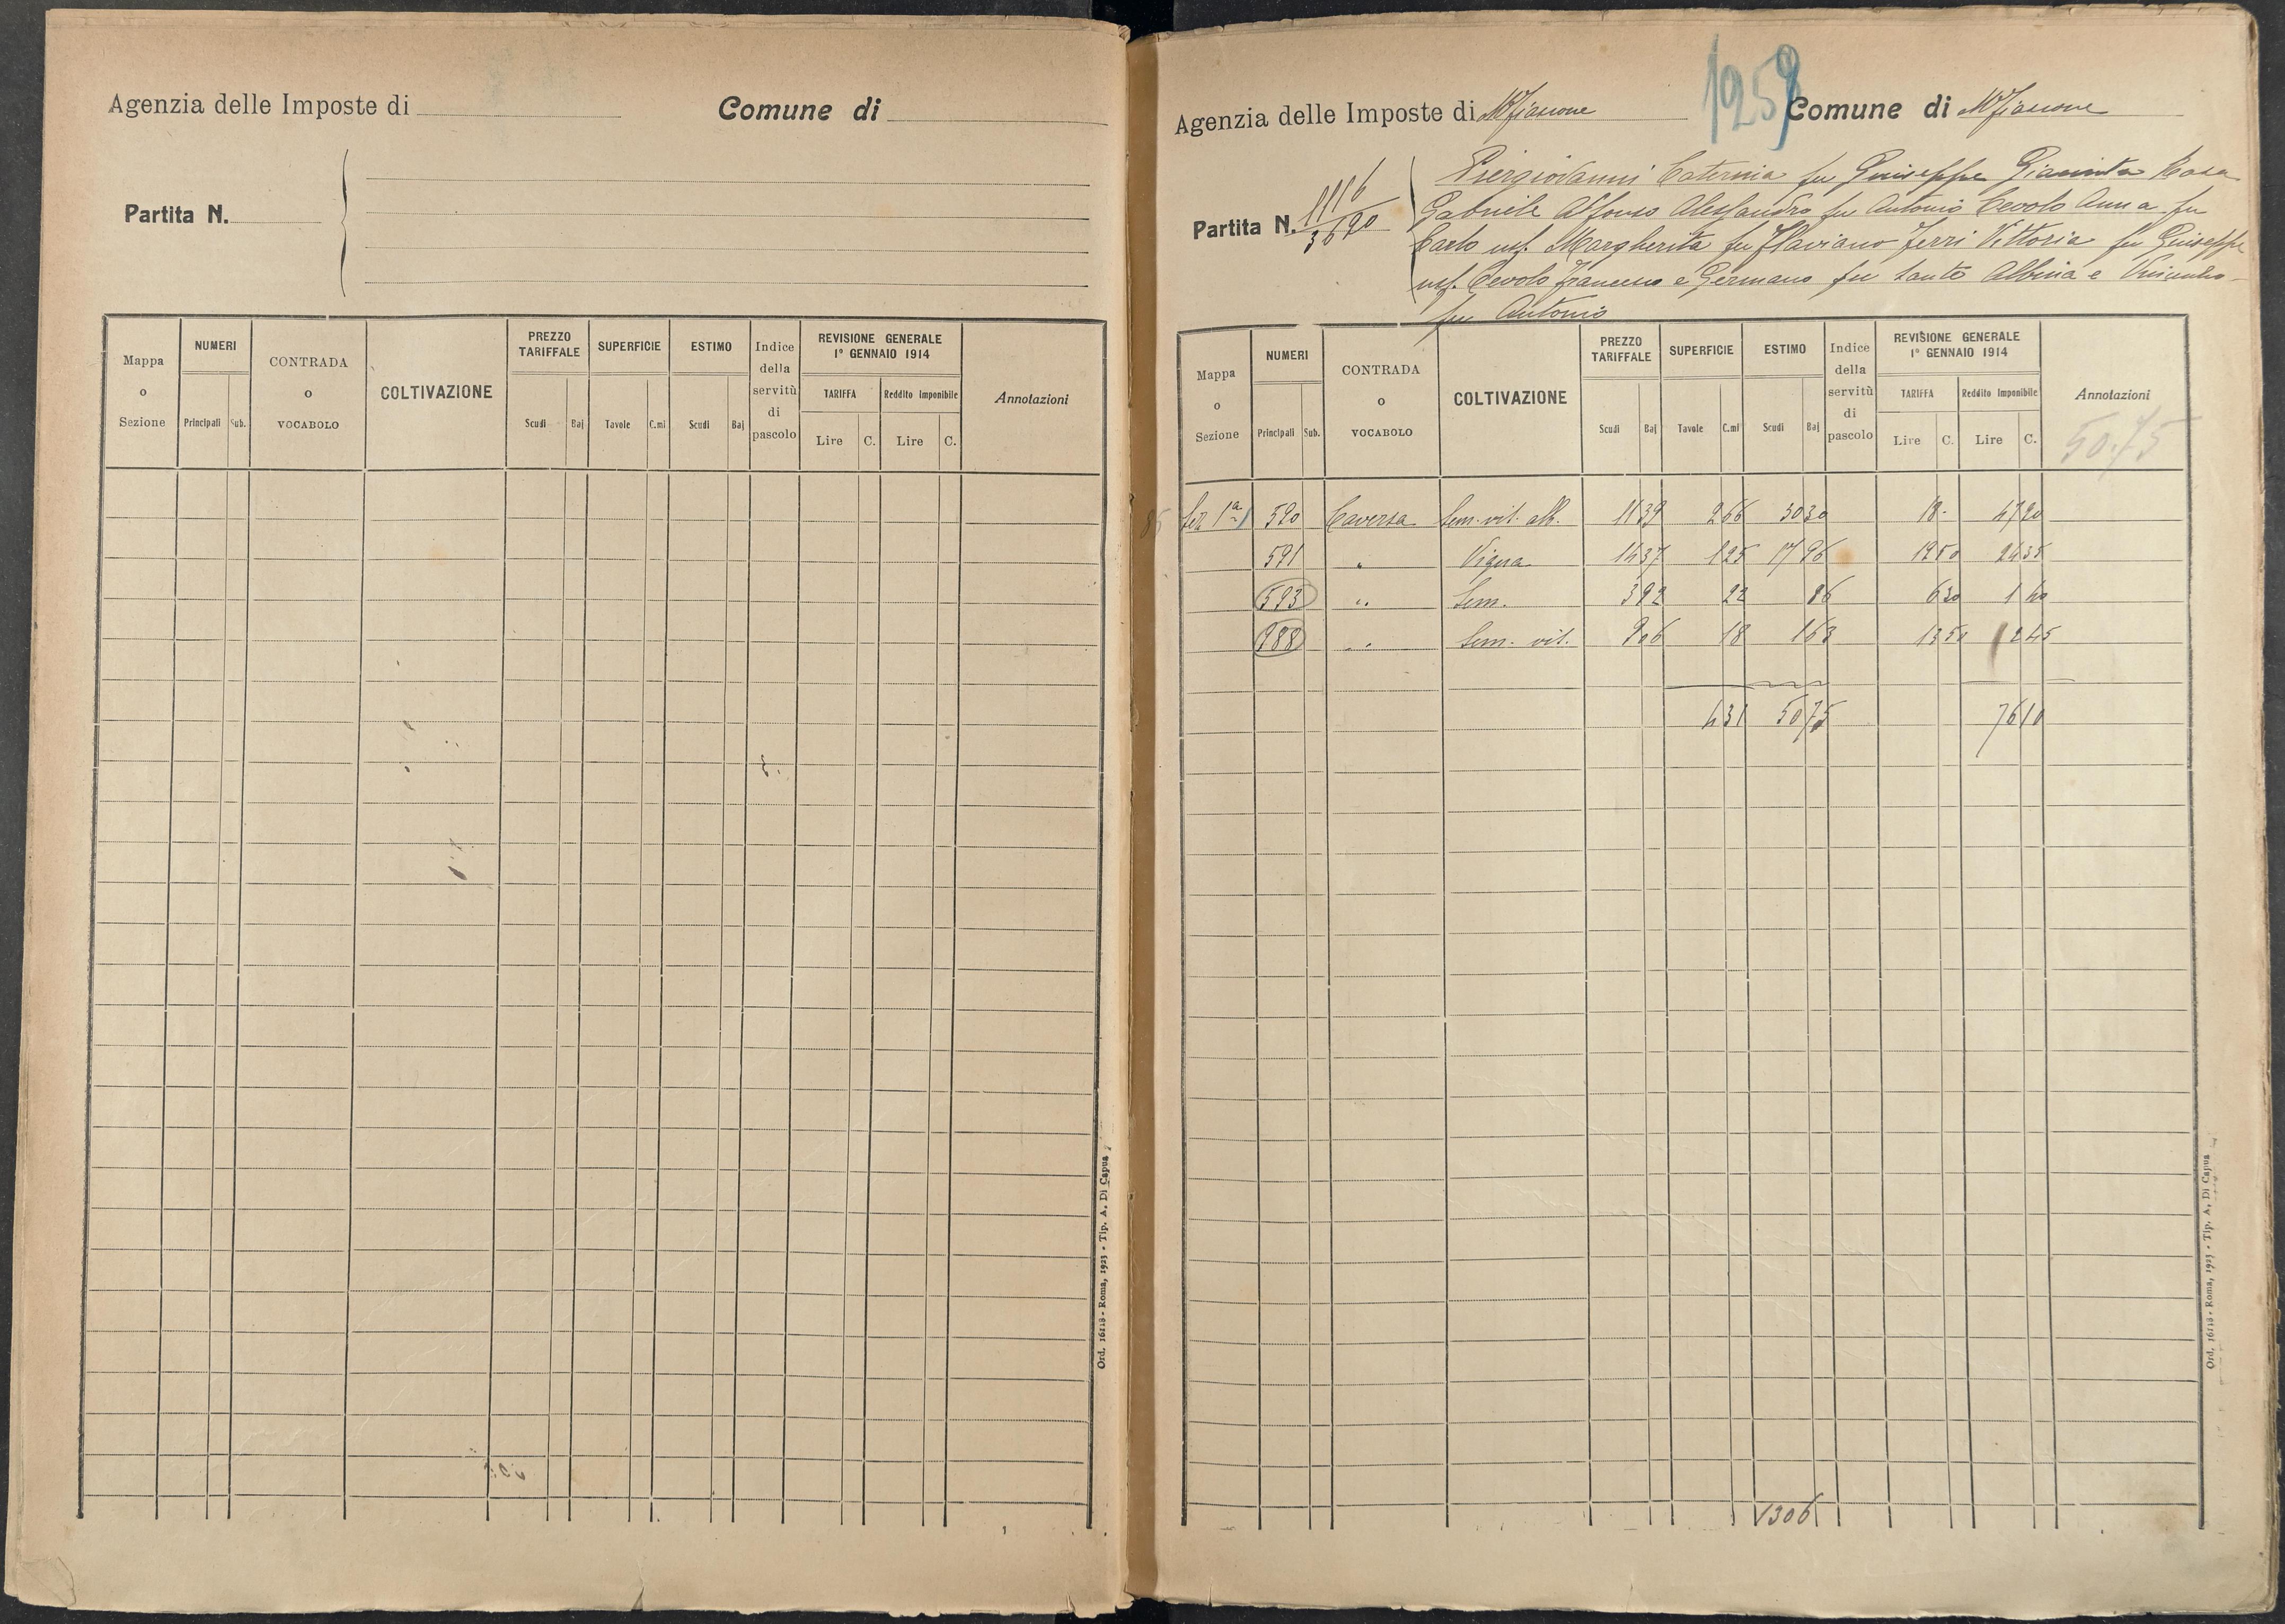 Agenzia delle Imposte di
Comune di
Partita N.
Mappa o Sezione NUMERI Principali Sub. CONTRADA o VOCABOLO COLTIVAZIONE PREZZO TARIFFALE Scudi Baj SUPERFICIE Tavole C.mi ESTIMO Scudi Baj Indice della servitù di pascolo REVISIONE GENERALE 1° GENNAIO 1914 TARIFFA Lire C. Reddito Imponibile Lire C. Annotazioni
Ord. 16118 - Roma, 1923 - Tip. A. Di Capua
1959
Agenzia delle Imposte di Mfiascone Comune di Mfiascone
Partita N. 1116
3690
Piergiovanni Caterina fu Giuseppe Giacinta Rosa
Gabriele Alfonso Alessandro fu Antonio Cevolo Anna fu
Carlo usf. Margherita fu Flaviano Ferri Vittoria fu Giuseppe
usf. Cevolo Francesco e Germano fu Santo Albina e
fu Antonio
Mappa o Sezione NUMERI Principali Sub. CONTRADA o VOCABOLO COLTIVAZIONE PREZZO TARIFFALE Scudi Baj SUPERFICIE Tavole C.mi ESTIMO Scudi Baj Indice della servitù di pascolo REVISIONE GENERALE 1° GENNAIO 1914 TARIFFA Lire C. Reddito Imponibile Lire C. Annotazioni
50.75
Sez 1a 590 Caversa Sem. vit. alb. 11 39 2 66 30 30 18 - 47 20
591 " Vigna 14 37 1 25 17 96 19 50 24 35
593 " Sem. 3 92 22 86 6 30 1 40
988 " Sem. vit. 9 06 18 1 63 13 50 2 45
4 31 50 75 76 10
1306
Ord. 16118 - Roma, 1923 - Tip. A. Di Capua